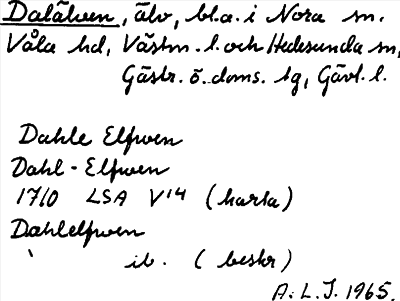 Dalälven, älv, bl.a. i Nora sn.
Våla hd, Västm. l. och Hedesunda sn,
Gästr. ö. doms. tg, Gävl. l.
Dahle Elfwen
Dahl-Elfwen
1710 LSA V 14 (karta)
Dahlelfwen
ib. (beskr)
A. L. J. 1965.